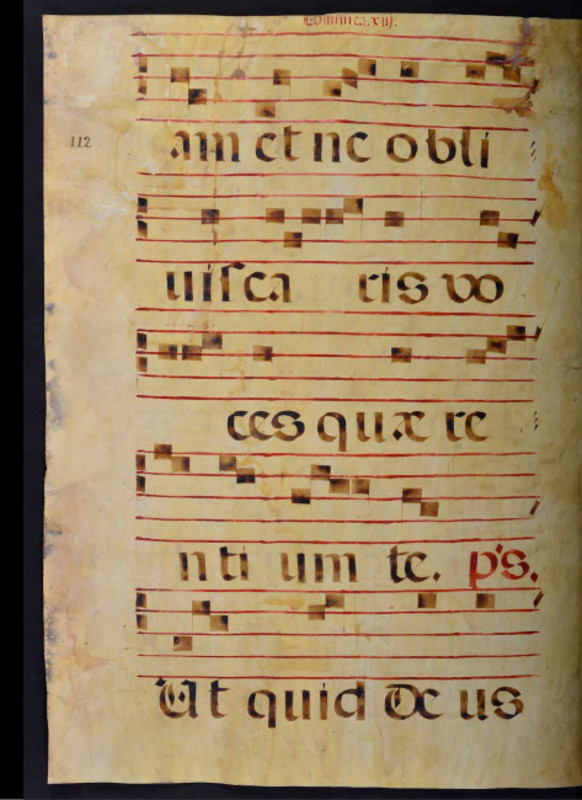 Dominica. xiij.
112
am et ne obli
uiſca ris vo
ces quæ re
nti um te. p̄s.
Ut quid De us